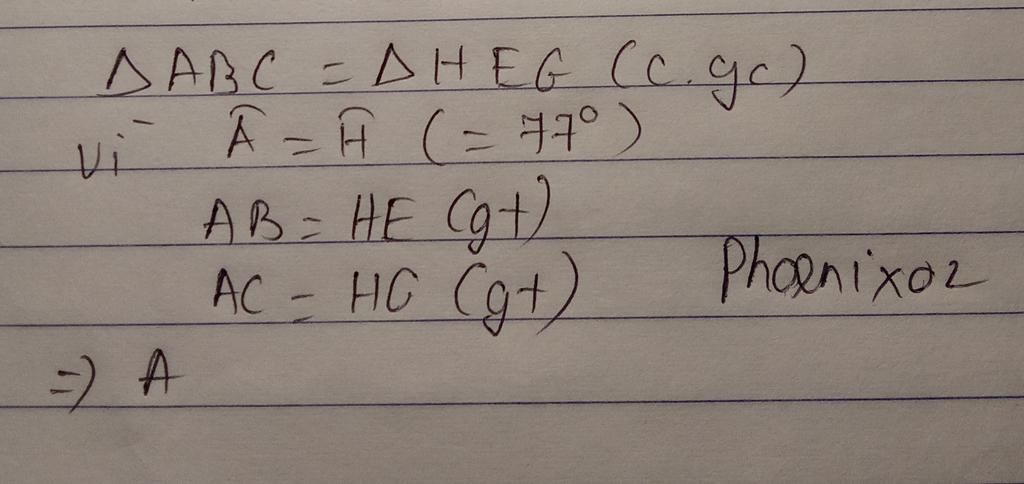 Δ ABC = Δ HEG (c.gc)
Vì Â = Ĥ (= 77°)
AB = HE (gt)
AC = HG (gt)
Phoenix02
=> A